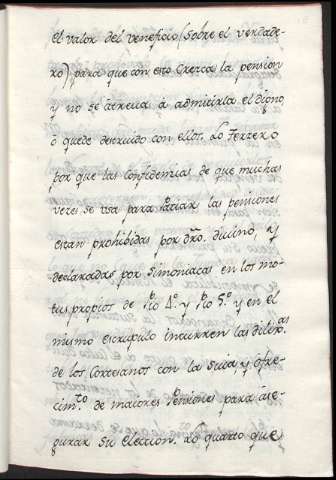 el valor del veneficio (sobre el verdade-
ro) para que con esto Cresca la pension
y no se atreua á admitirla el digno,
ó quede destruido con ellos. Lo Terzero
por que las Confidencias de que muchas
veces se usa para sacar las pensiones
estan prohibidas por dro. diuino, y
declaradas por Simoniacas en los mo-
tus propios de Pio 4º y Pio 5º y en el
mismo escrupulo incurren las dilix.as
de los Cortesanos con la suia y Ofre-
cim.to de maiores Pensiones para ase-
gurar su eleccion. Lo quarto que